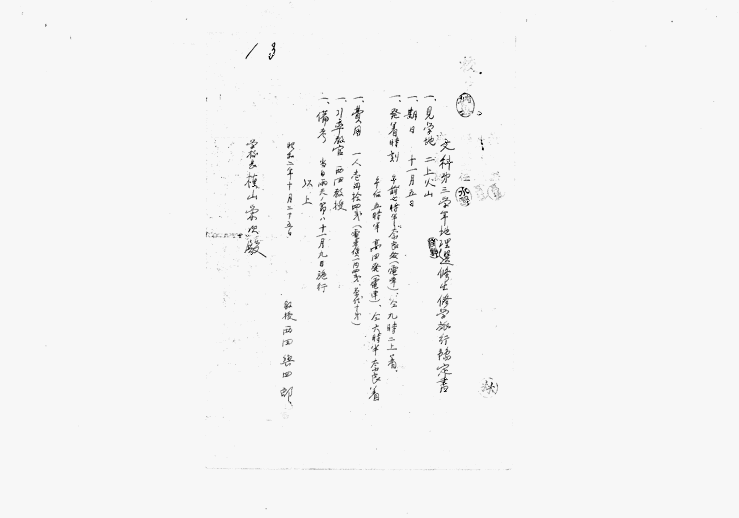 13
文科第三学年地理選修生修学旅行豫定書
一、見学地 二上火山
一、期日 十一月五日
一、発着時刻 午前七時半奈良発(電車)、仝九時二上着、
午后五時半高田発(電車)、仝六時半奈良着
一、費用 一人壱円拾四銭
一、引率教官 西田教授
一、備考 当日雨天ノ節ハ十一月九日施行
以上
昭和二年十月二十五日
教授 西田與四郎
学校長 槇山榮次殿